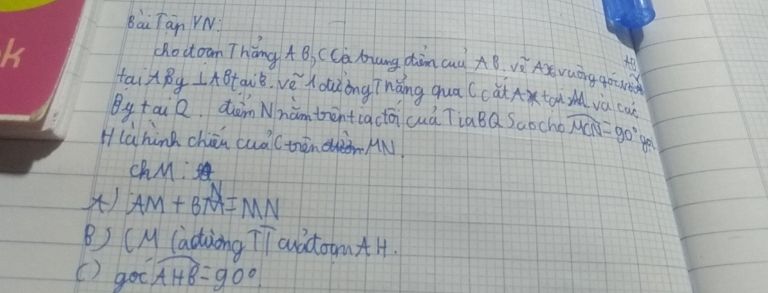 k
Bài Tập VN:
cho đoạn Thẳng AB, C Là trung điểm cuả AB. vẽ Ax vuông góc với AB
tại A By ⊥ AB tại B. vẽ 1 đường Thẳng qua C cắt Ax tại M và cắt
By tại Q. điểm N nằm trên tia đối cuả Tia BQ Sao cho MCN = 90° gọi
H là hình chiếu cuả C trên MN.
ch M:
A) AM + BN = MN
B) CM là đường TT của đoạn AH.
C) góc AHB = 90°